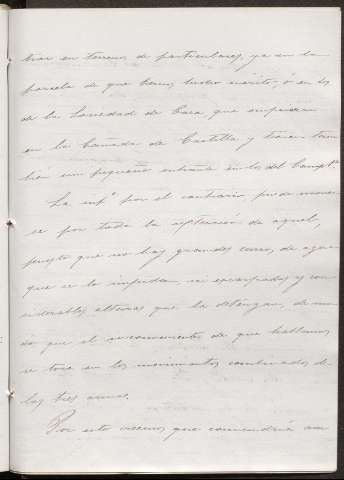 trar en terrenos de particulares, ya en la
parcela de que hemos hecho mérito, ó en los
de la Sociedad de Caza, que empiezan
en la Cañada de Castilla y tienen tam
bién un pequeño entrante en los del Campto.
La infa. por el contrario, puede mover
se por toda la extensión de aquel,
puesto que no hay grandes cursos de agua
que se lo impidan, ni escarpados y con
siderables alturas que la detengan, de mo
do que el reconocimiento de que hablamos
se toca en los movimientos combinados de
las tres armas.
Por esto creemos que convendría am